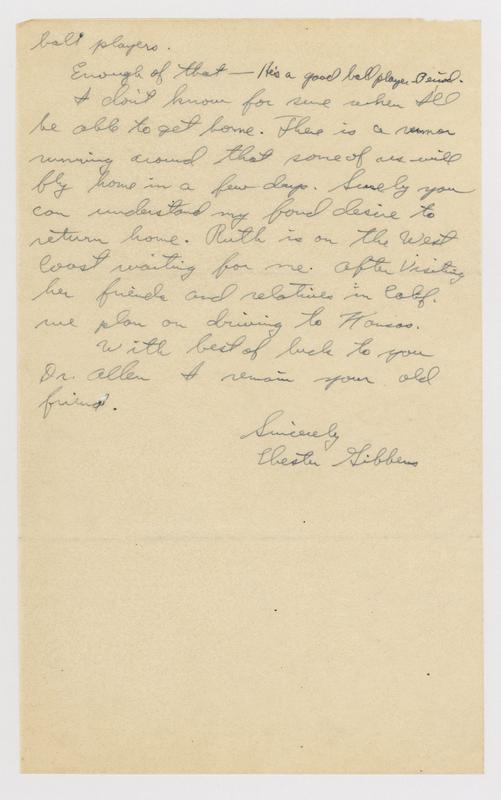 ball players.
Enough of that — He's a good ball player. Period.
I don't know for sure when I'll
be able to get home. There is a rumor
running around that some of us will
fly home in a few days. Surely you
can understand my fond desire to
return home. Ruth is on the West
Coast waiting for me. After Visiting
her friends and relatives in Calif.
we plan on driving to Kansas.
With best of luck to you
Dr. Allen I remain your old
friend.
Sincerely
Chester Gibbens